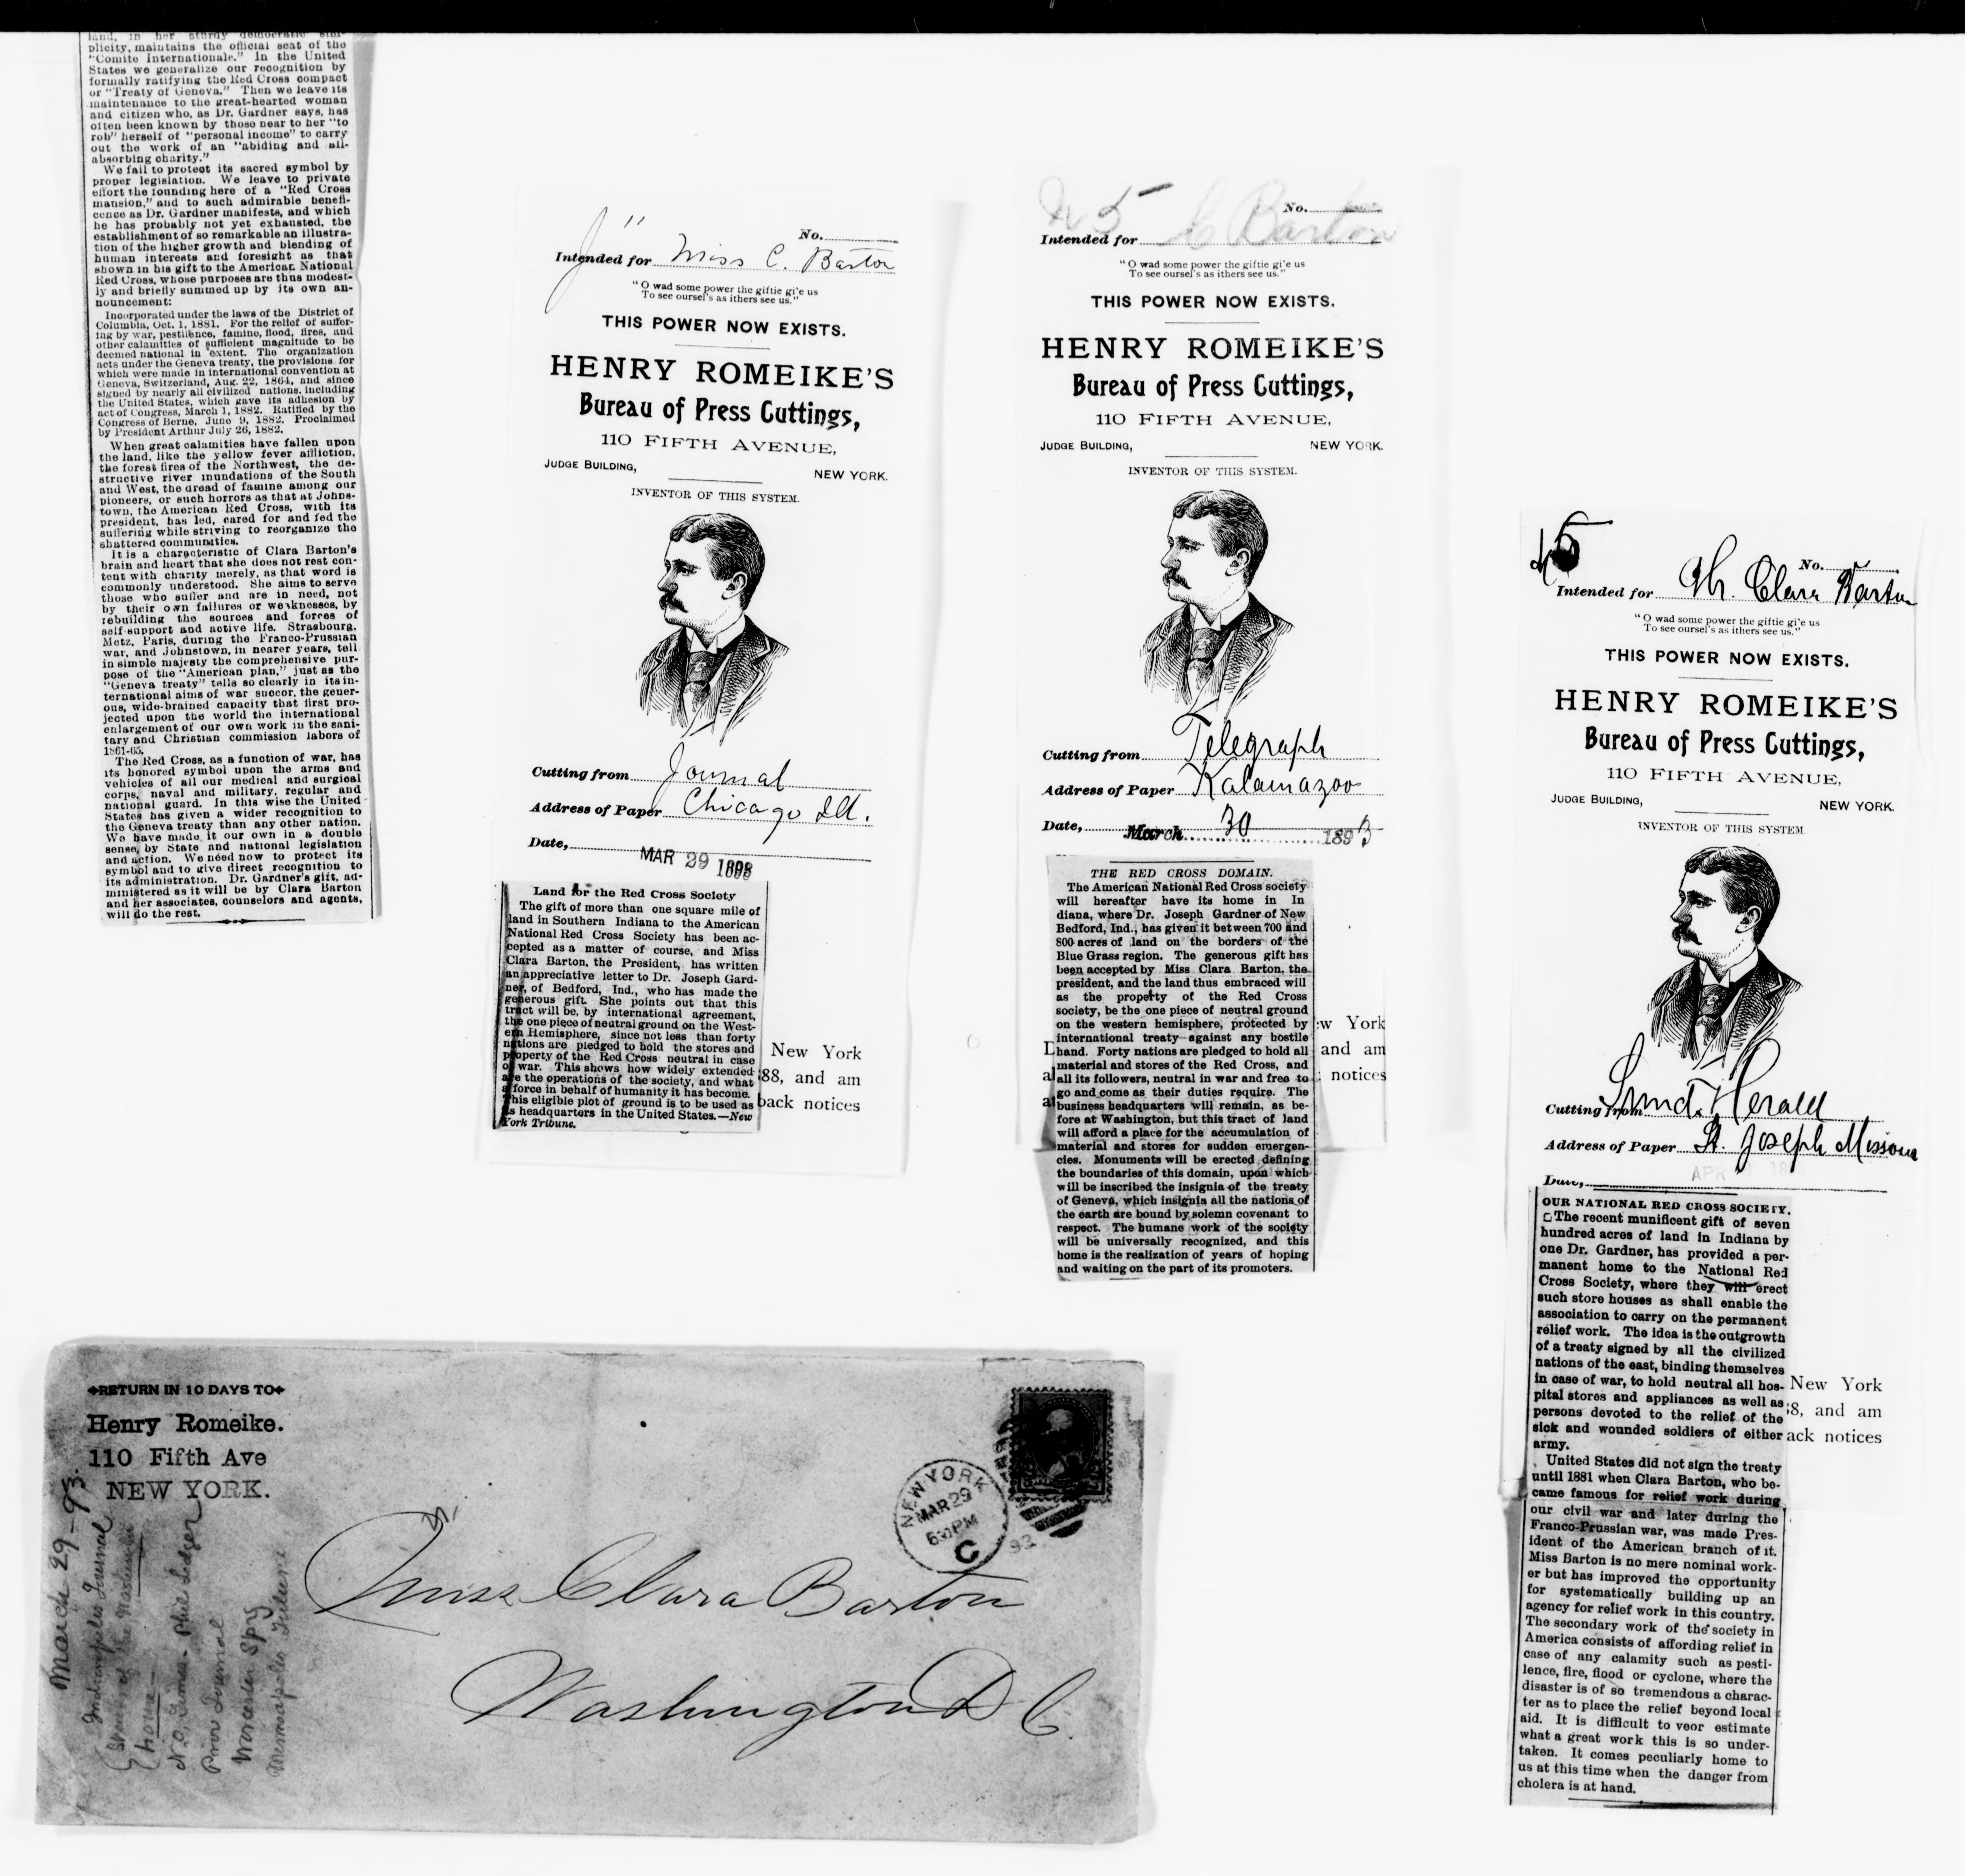 land, in her sturdy democratic sim-
plicity, maintains the official seat of the
"Comite Internationale." In the United
States we generalize our recognition by
formally ratifying the Red Cross compact
or "Treaty of Geneva." Then we leave its
maintenance to the great-hearted woman
and citizen who, as Dr. Gardner says, has
often been known by those near to her "to
rob" herself of "personal income" to carry
out the work of an "abiding and all-
absorbing charity."
We fail to protect its sacred symbol by
proper legislation. We leave to private
effort the founding here of a "Red Cross
mansion," and to such admirable benefi-
cence as Dr. Gardner manifests, and which
he has probably not yet exhausted, the
establishment of so remarkable an illustra-
tion of the higher growth and blending of
human interests and foresight as that
shown in his gift to the American National
Red Cross, whose purposes are thus modest-
ly and briefly summed up by its own an-
nouncement:
Incorporated under the laws of the District of
Columbia, Oct. 1, 1881. For the relief of suffer-
ing by war, pestilence, famine, flood, fires, and
other calamities of sufficient magnitude to be
deemed national in extent. The organization
acts under the Geneva treaty, the provisions for
which were made in international convention at
Geneva, Switzerland, Aug. 22, 1864, and since
signed by nearly all civilized nations, including
the United States, which gave its adhesion by
act of Congress, March 1, 1882. Ratified by the
Congress of Berne, June 9, 1882. Proclaimed
by President Arthur July 26, 1882.
When great calamities have fallen upon
the land, like the yellow fever affliction,
the forest fires of the Northwest, the de-
structive river inundations of the South
and West, the dread of famine among our
pioneers, or such horrors as that at Johns-
town, the American Red Cross, with its
president, has led, cared for and fed the
suffering while striving to reorganize the
shattered communities.
It is a characteristic of Clara Barton's
brain and heart that she does not rest con-
tent with charity merely, as that word is
commonly understood. She aims to serve
those who suffer and are in need, not
by their own failures or weaknesses, by
rebuilding the sources and forces of
self-support and active life. Strasbourg,
Metz, Paris, during the Franco-Prussian
war, and Johnstown, in nearer years, tell
in simple majesty the comprehensive pur-
pose of the "American plan," just as the
"Geneva treaty" tells so clearly in its in-
ternational aims of war succor, the gener-
ous, wide-brained capacity that first pro-
jected upon the world the international
enlargement of our own work in the sani-
tary and Christian commission labors of
1861-65.
The Red Cross, as a function of war, has
its honored symbol upon the arms and
vehicles of all our medical and surgical
corps, naval and military, regular and
national guard. In this wise the United
States has given a wider recognition to
the Geneva treaty than any other nation.
We have made it our own in a double
sense, by State and national legislation
and action. We need now to protect its
symbol and to give direct recognition to
its administration. Dr. Gardner's gift, ad-
ministered as it will be by Clara Barton
and her associates, counselors and agents,
will do the rest.
No.
Intended for Miss C. Barton
"O wad some power the giftie gi'e us
To see oursel's as ithers see us."
THIS POWER NOW EXISTS.
HENRY ROMEIKE'S
Bureau of Press Cuttings,
110 FIFTH AVENUE,
JUDGE BUILDING, NEW YORK.
INVENTOR OF THIS SYSTEM.
Cutting from Journal
Address of Paper Chicago Ill.
Date, MAR 29 1893
Land for the Red Cross Society
The gift of more than one square mile of
land in Southern Indiana to the American
National Red Cross Society has been ac-
cepted as a matter of course, and Miss
Clara Barton, the President, has written
an appreciative letter to Dr. Joseph Gard-
ner, of Bedford, Ind., who has made the
generous gift. She points out that this
tract will be, by international agreement,
the one piece of neutral ground on the West-
ern Hemisphere, since not less than forty
nations are pledged to hold the stores and
property of the Red Cross neutral in case
of war. This shows how widely extended
are the operations of the society, and what
a force in behalf of humanity it has become.
This eligible plot of ground is to be used as
its headquarters in the United States.—New
York Tribune.
New York
88, and am
back notices
5
No.
Intended for C Barton
"O wad some power the giftie gi'e us
To see oursel's as ithers see us."
THIS POWER NOW EXISTS.
HENRY ROMEIKE'S
Bureau of Press Cuttings,
110 FIFTH AVENUE,
JUDGE BUILDING, NEW YORK.
INVENTOR OF THIS SYSTEM.
Cutting from Telegraph
Address of Paper Kalamazoo
Date, March 30 1893
THE RED CROSS DOMAIN.
The American National Red Cross society
will hereafter have its home in In
diana, where Dr. Joseph Gardner of New
Bedford, Ind., has given it between 700 and
800 acres of land on the borders of the
Blue Grass region. The generous gift has
been accepted by Miss Clara Barton, the
president, and the land thus embraced will
as the property of the Red Cross
society, be the one piece of neutral ground
on the western hemisphere, protected by
international treaty against any hostile
hand. Forty nations are pledged to hold all
material and stores of the Red Cross, and
all its followers, neutral in war and free to
go and come as their duties require. The
business headquarters will remain, as be-
fore at Washington, but this tract of land
will afford a place for the accumulation of
material and stores for sudden emergen-
cies. Monuments will be erected defining
the boundaries of this domain, upon which
will be inscribed the insignia of the treaty
of Geneva, which insignia all the nations of
the earth are bound by solemn covenant to
respect. The humane work of the society
will be universally recognized, and this
home is the realization of years of hoping
and waiting on the part of its promoters.
ew York
and am
notices
45
No.
Intended for Clara Barton
"O wad some power the giftie gi'e us
To see oursel's as ithers see us."
THIS POWER NOW EXISTS.
HENRY ROMEIKE'S
Bureau of Press Cuttings,
110 FIFTH AVENUE,
JUDGE BUILDING, NEW YORK.
INVENTOR OF THIS SYSTEM.
Cutting from Herald
Address of Paper St. Joseph Missouri
Date, APR
OUR NATIONAL RED CROSS SOCIETY.
The recent munificent gift of seven
hundred acres of land in Indiana by
one Dr. Gardner, has provided a per-
manent home to the National Red
Cross Society, where they will erect
such store houses as shall enable the
association to carry on the permanent
relief work. The idea is the outgrowth
of a treaty signed by all the civilized
nations of the east, binding themselves
in case of war, to hold neutral all hos-
pital stores and appliances as well as
persons devoted to the relief of the
sick and wounded soldiers of either
army.
United States did not sign the treaty
until 1881 when Clara Barton, who be-
came famous for relief work during
our civil war and later during the
Franco-Prussian war, was made Pres-
ident of the American branch of it.
Miss Barton is no mere nominal work-
er but has improved the opportunity
for systematically building up an
agency for relief work in this country.
The secondary work of the society in
America consists of affording relief in
case of any calamity such as pesti-
lence, fire, flood or cyclone, where the
disaster is of so tremendous a charac-
ter as to place the relief beyond local
aid. It is difficult to veor estimate
what a great work this is so under-
taken. It comes peculiarly home to
us at this time when the danger from
cholera is at hand.
New York
8, and am
ack notices
RETURN IN 10 DAYS TO
Henry Romeike.
110 Fifth Ave
NEW YORK.
NEW YORK
MAR 29
630PM
C
Miss Clara Barton
Washington D C.
March 29-93.
Indianapolis Journal
home
N.O. Times - Phil Ledger
Prov Journal
Worcester Spy
Minneapolis Tribune